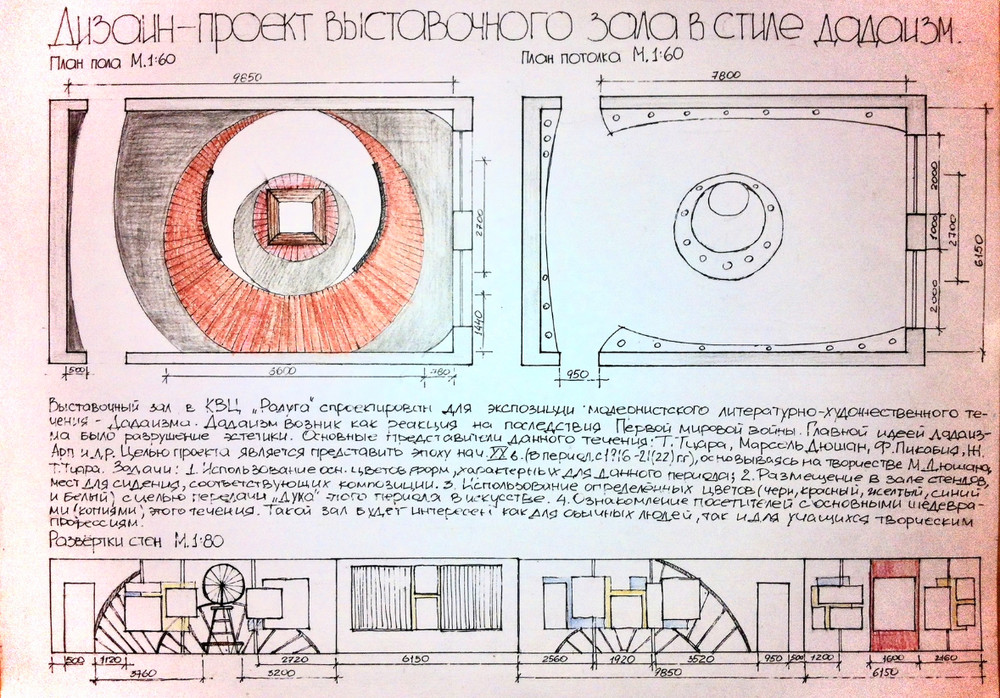 Дизайн-проект выставочного зала в стиле дадаизм.
План пола М.1:60
План потолка М.1:60
9850
7800
2700
1440
500
3600
780
2000
1000
2000
2700
6150
950
Выставочный зал в КВЦ „Радуга" спроектирован для экспозиции модернистского литературно-художественного те-
чения - Дадаизма. Дадаизм возник как реакция на последствия Первой мировой войны. Главной идеей дадаиз-
ма было разрушение эстетики. Основные представители данного течения: Т. Тцара, Марсель Дюшан, Ф. Пикабия, Ж.
Арп и др. Целью проекта является представить эпоху нач. XX в. (в период с 1916 - 21(22) гг), основываясь на творчестве М. Дюшана,
Т. Тцара. Задачи: 1. Использование осн. цветов форм, характерных для данного периода; 2. Размещение в зале стендов,
мест для сидения, соответствующих композиции. 3. Использование определённых цветов (черн, красный, желтый, синий
и белый) с целью передачи „духа" этого периода в искусстве. 4. Ознакомление посетителей с основными шедевра-
ми (копиями) этого течения. Такой зал будет интересен как для обычных людей, так и для учащихся творческим
профессиям.
Развёртки стен М.1:80
500 1120 2720 6150 2560 1920 3520 950 500 1200 1600 2160
3760 3200 7850 6150